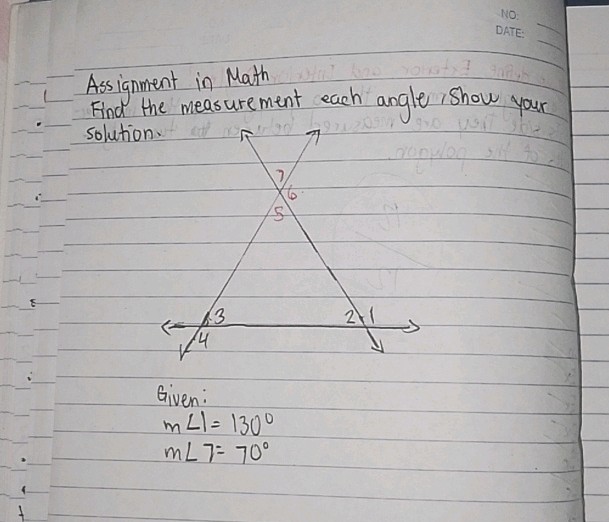 NO:
DATE:
Assignment in Math
Find the measurement each angle, Show your
solution.
7
6
5
3
2 1
4
Given:
m∠1= 130°
m∠7= 70°